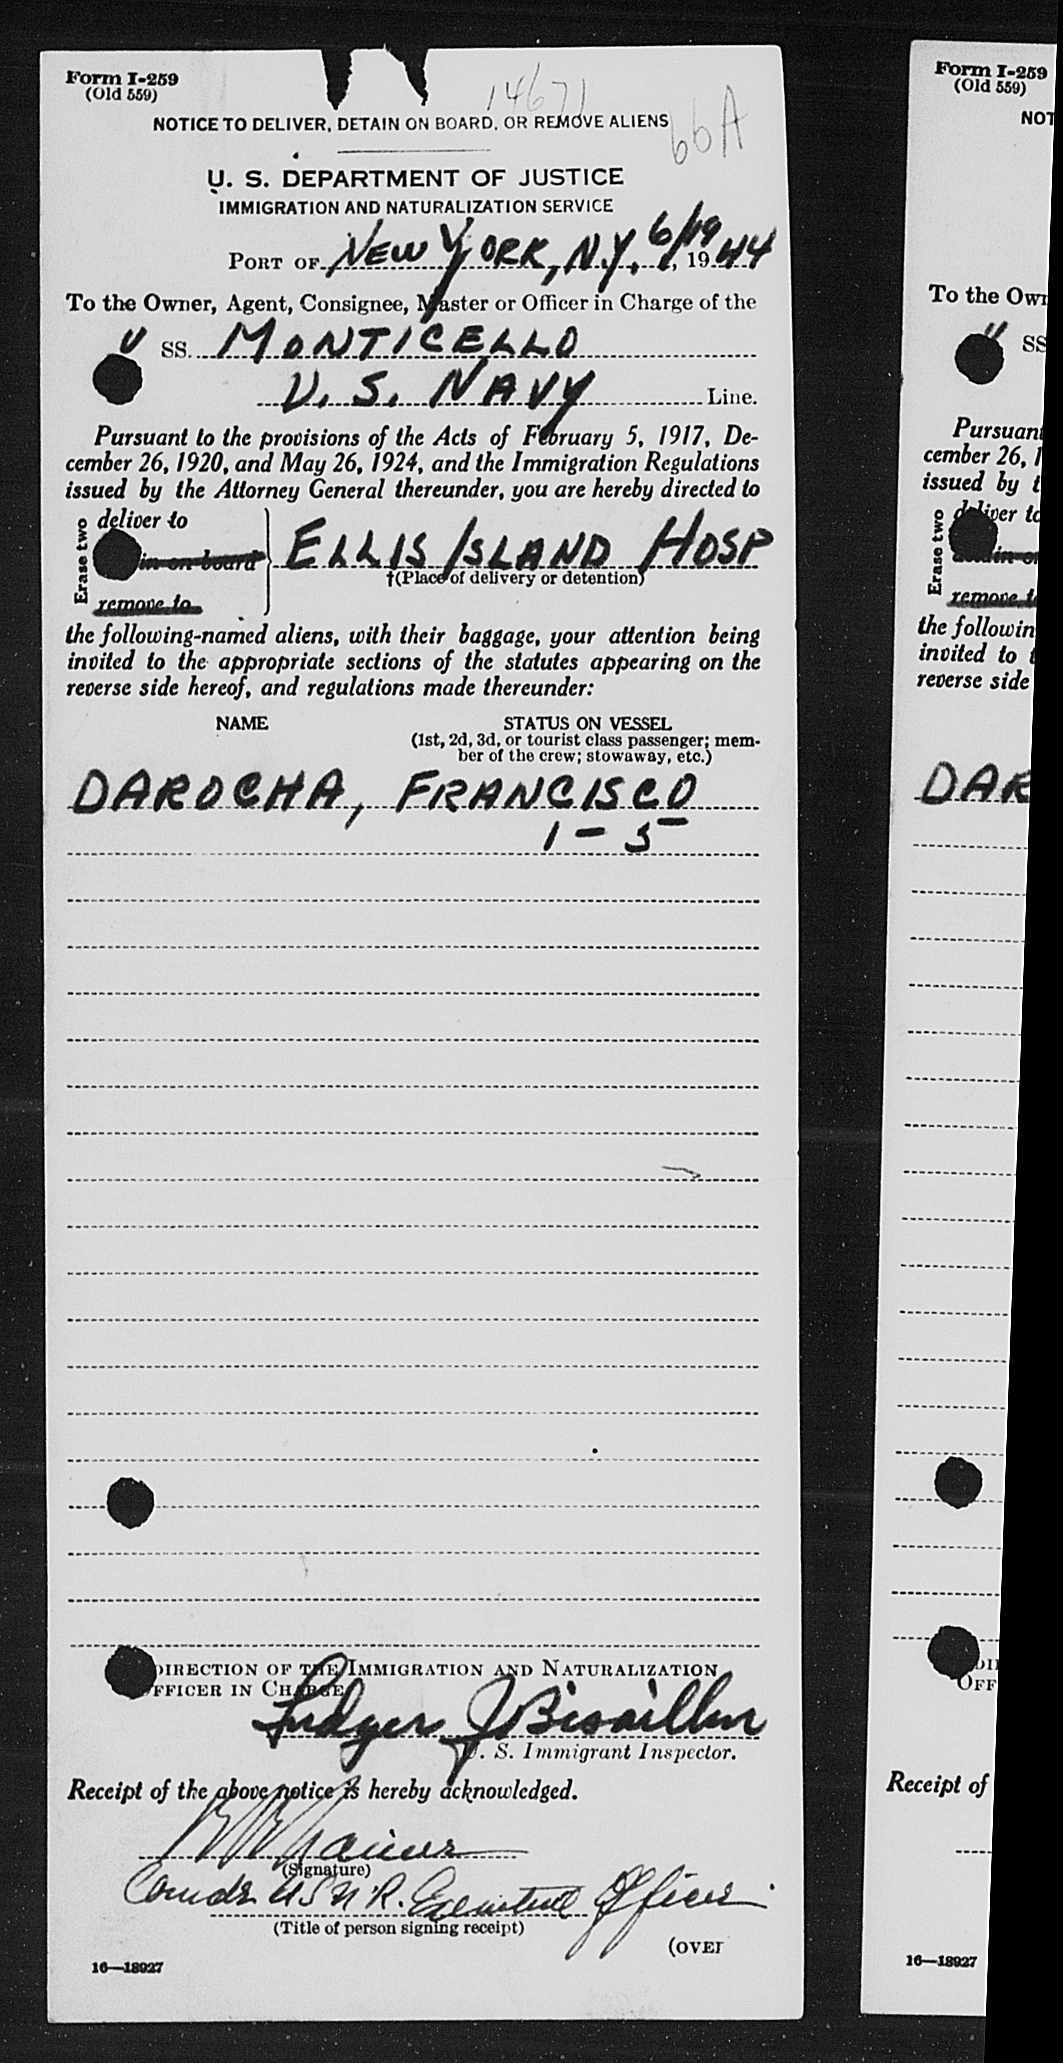 Form I-259
(Old 559)
14671
66A
NOTICE TO DELIVER, DETAIN ON BOARD, OR REMOVE ALIENS
U. S. DEPARTMENT OF JUSTICE
IMMIGRATION AND NATURALIZATION SERVICE
PORT OF NEW YORK, N.Y., 6/19, 1944
To the Owner, Agent, Consignee, Master or Officer in Charge of the
SS. MONTICELLO
U. S. NAVY Line.
Pursuant to the provisions of the Acts of February 5, 1917, De-
cember 26, 1920, and May 26, 1924, and the Immigration Regulations
issued by the Attorney General thereunder, you are hereby directed to
Erase two
deliver to
in on board
remove to
ELLIS ISLAND HOSP
†(Place of delivery or detention)
the following-named aliens, with their baggage, your attention being
invited to the appropriate sections of the statutes appearing on the
reverse side hereof, and regulations made thereunder:
NAME STATUS ON VESSEL
(1st, 2d, 3d, or tourist class passenger; mem-
ber of the crew; stowaway, etc.)
DAROCHA, FRANCISCO
1-5
DIRECTION OF THE IMMIGRATION AND NATURALIZATION
OFFICER IN CHARGE
Ludger J Bisaillon
U. S. Immigrant Inspector.
Receipt of the above notice is hereby acknowledged.
(Signature)
Comdr USNR. Executive Officer.
(Title of person signing receipt)
(OVER
16—18927
Form I-259
(Old 559)
NOT
To the Own
SS
Pursuant
cember 26, 1
issued by t
Erase two
deliver to
in o
remove t
the followin
invited to t
reverse side
DAR
OFF
Receipt of
16—18927